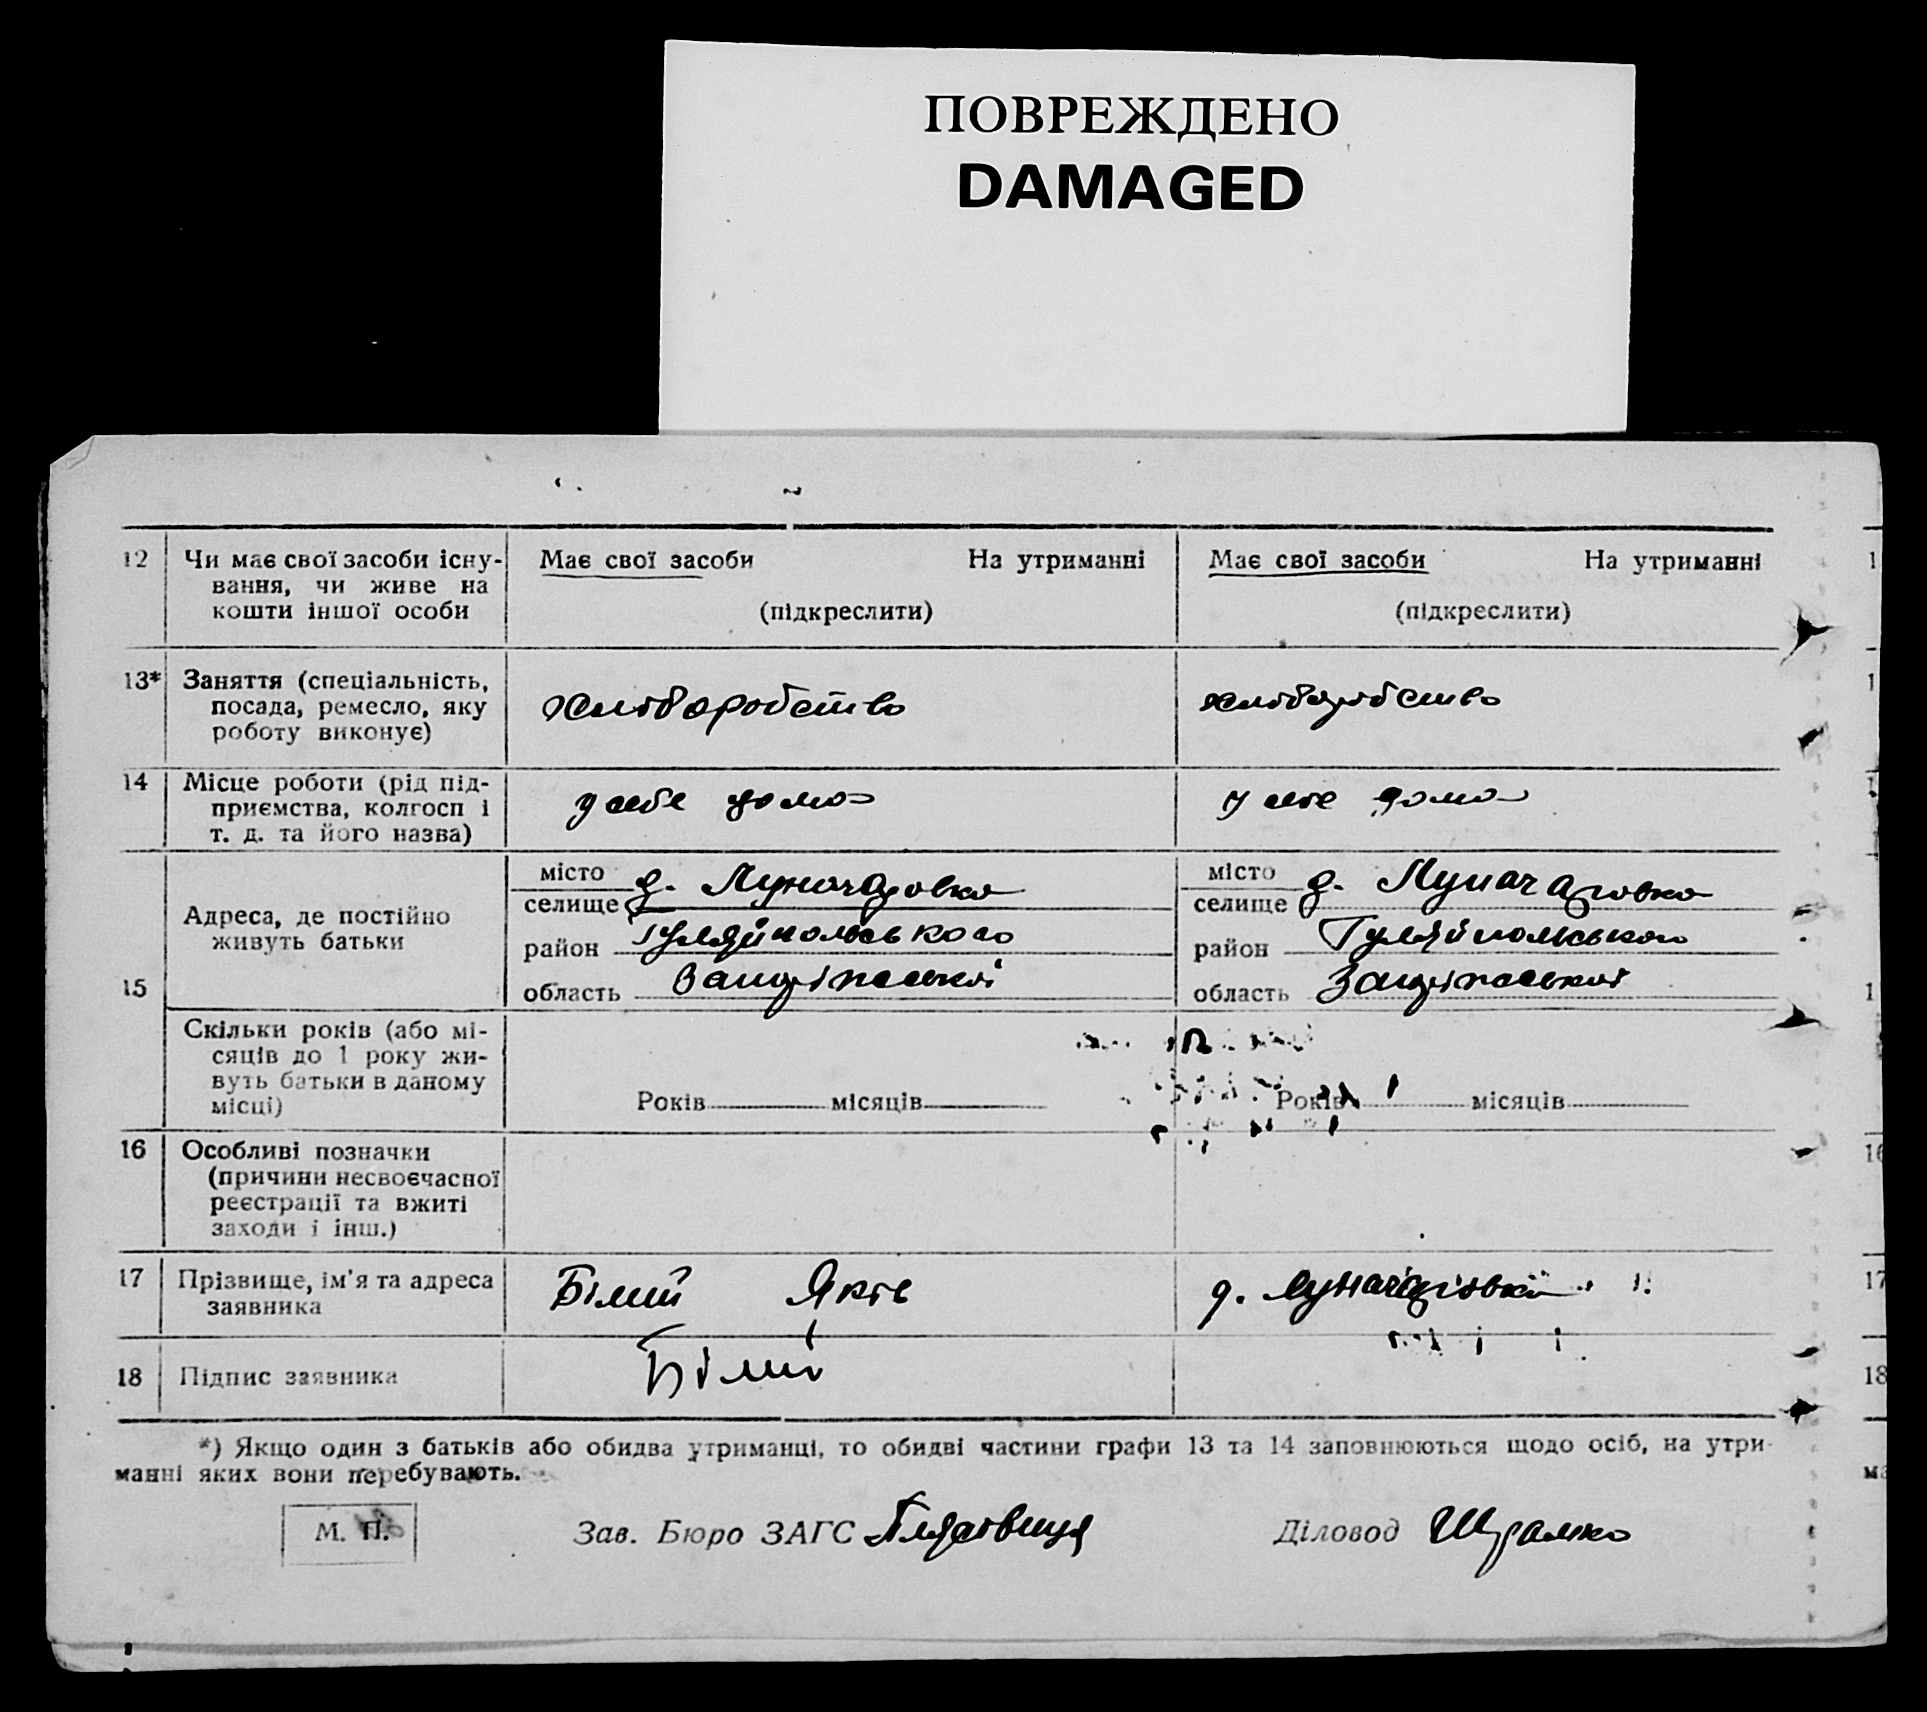 ПОВРЕЖДЕНО
DAMAGED
12 Чи має свої засоби існу- Має свої засоби На утриманні Має свої засоби На утриманні 1
вання, чи живе на
кошти іншої особи (підкреслити) (підкреслити)
13* Заняття (спеціальність, 1
посада, ремесло, яку хліборобство хліборобство
роботу виконує)
14 Місце роботи (рід під- 1
приємства, колгосп і у себе дома у себе дома
т. д. та його назва)
місто д. Луначаровка місто д. Луначаровка
Адреса, де постійно селище селище
живуть батьки район Гуляйпольського район Гуляйпольського
15 область Запоріжської область Запоріжської 1
Скільки років (або мі-
сяців до 1 року жи-
вуть батьки в даному
місці) Років місяців Років місяців
16 Особливі позначки 16
(причини несвоєчасної
реєстрації та вжиті
заходи і інш.)
17 Прізвище, ім'я та адреса Білий Яків д. Луначаровка 17
заявника
18 Підпис заявника Білий 18
*) Якщо один з батьків або обидва утриманці, то обидві частини графи 13 та 14 заповнюються щодо осіб, на утри-
манні яких вони перебувають. ма
М. П. Зав. Бюро ЗАГС Діловод Шрамко